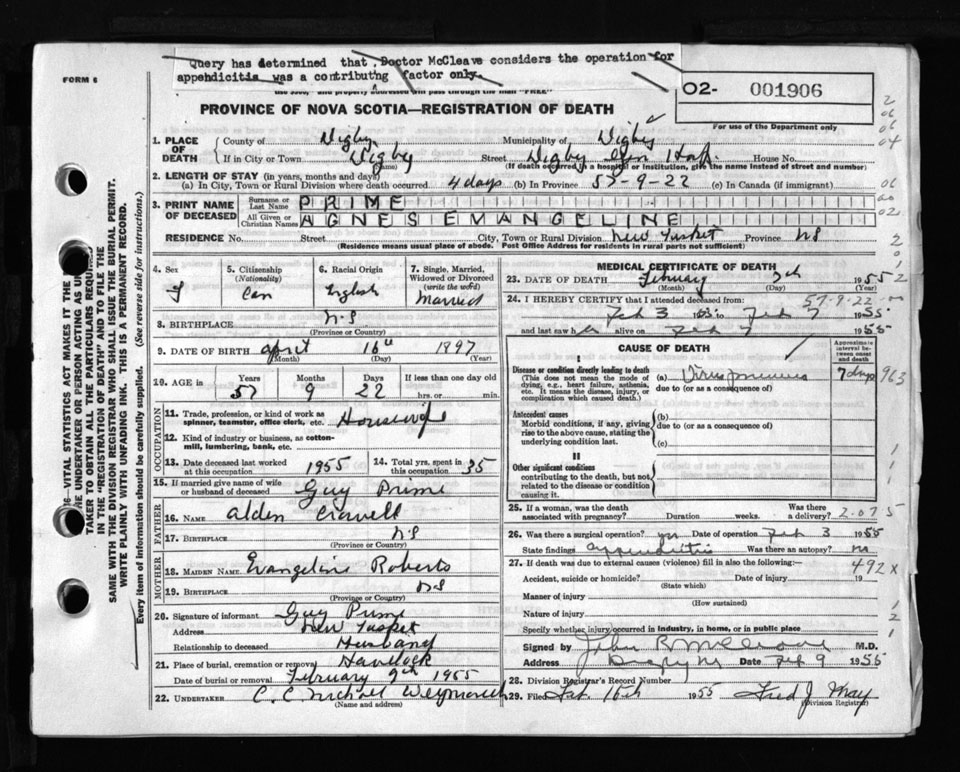 Query has determined that Doctor McCleave considers the operation for
appehdicitis was a contributng factor only.
FORM 6
PROVINCE OF NOVA SCOTIA—REGISTRATION OF DEATH
O2- 001906
For use of the Department only
1. PLACE OF DEATH County of Digby Municipality of Digby
If in City or Town Digby Street Digby Gen Hosp. House No.
(Name) (If death occurred in a hospital or institution, give the name instead of street and number)
2. LENGTH OF STAY (in years, months and days)
(a) In City, Town or Rural Division where death occurred 4 days (b) In Province 57-9-22 (c) In Canada (if immigrant)
3. PRINT NAME OF DECEASED Surname or Last Name PRIME
All Given or Christian Names AGNES EVANGELINE
RESIDENCE No. Street City, Town or Rural Division New Tusket Province NS
(Residence means usual place of abode. Post Office Address for residents in rural parts not sufficient)
4. Sex F
5. Citizenship (Nationality) Can
6. Racial Origin English
7. Single, Married, Widowed or Divorced (write the word) Married
8. BIRTHPLACE N-S
(Province or Country)
9. DATE OF BIRTH April 16th 1897
(Month) (Day) (Year)
10. AGE in Years Months Days If less than one day old
57 9 22 hrs. or min.
OCCUPATION
11. Trade, profession, or kind of work as spinner, teamster, office clerk, etc. Housewife
12. Kind of industry or business, as cotton-mill, lumbering, bank, etc.
13. Date deceased last worked at this occupation 1955
14. Total yrs. spent in this occupation 35
15. If married give name of wife or husband of deceased Guy Prime
FATHER
16. NAME Alden
17. BIRTHPLACE N S
(Province or Country)
MOTHER
18. MAIDEN NAME Evangeline Roberts
19. BIRTHPLACE N S
(Province or Country)
20. Signature of informant Guy Prime
Address New Tusket
Relationship to deceased Husband
21. Place of burial, cremation or removal Havelock
Date of burial or removal February 9th 1955
22. UNDERTAKER C. C. Weymouth
(Name and address)
MEDICAL CERTIFICATE OF DEATH
23. DATE OF DEATH February 7th 1955
(Month) (Day) (Year)
24. I HEREBY CERTIFY that I attended deceased from:
57-9-22
Feb 3 1955 to Feb 7 1955
and last saw h er alive on Feb 7 1955
CAUSE OF DEATH
Approximate interval between onset and death
I
Disease or condition directly leading to death
(This does not mean the mode of dying, e.g., heart failure, asthenia, etc. It means the disease, injury, or complication which caused death.)
(a) Virus pneumonia 7 days 963
due to (or as a consequence of)
Antecedent causes
Morbid conditions, if any, giving rise to the above cause, stating the underlying condition last.
(b)
due to (or as a consequence of)
(c)
II
Other significant conditions
contributing to the death, but not related to the disease or condition causing it.
25. If a woman, was the death associated with pregnancy? Duration weeks. Was there a delivery? 2.075
26. Was there a surgical operation? yes Date of operation Feb 3 1955
State findings appendicitis Was there an autopsy? no
27. If death was due to external causes (violence) fill in also the following:— 492X
Accident, suicide or homicide? Date of injury 19
(State which)
Manner of injury
(How sustained)
Nature of injury
Specify whether injury occurred in industry, in home, or in public place
Signed by John R McCleave M.D.
Address Digby NS Date Feb 9 1955
28. Division Registrar's Record Number
29. Filed Feb 16th 1955 Fred J. May
(Division Registrar)
SAME WITH THE DIVISION REGISTRAR WHO SHALL ISSUE THE BURIAL PERMIT.
WRITE PLAINLY WITH UNFADING INK. THIS IS A PERMANENT RECORD.
Every item of information should be carefully supplied. (See reverse side for instructions.)